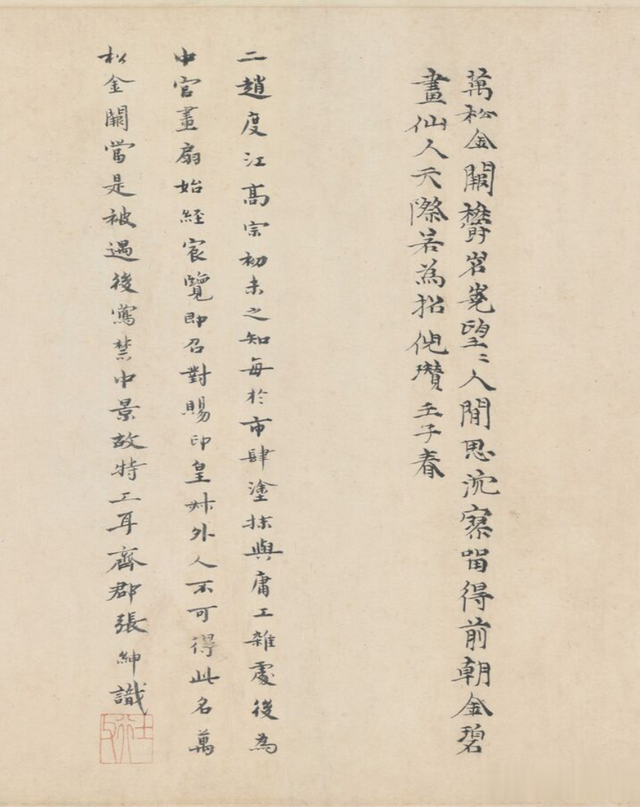 萬松金闕欝岧嶤望〻人間思泬寥留得前朝金碧
畫仙人天際若為招倪瓚壬子春
二趙度江高宗初未之知每於市肆塗抹與庸工雜處後為
中官畫扇始經宸覽即召對賜印皇叔外人不可得此名萬
松金闕當是被遇後寫禁中景故特工耳齊郡張紳識